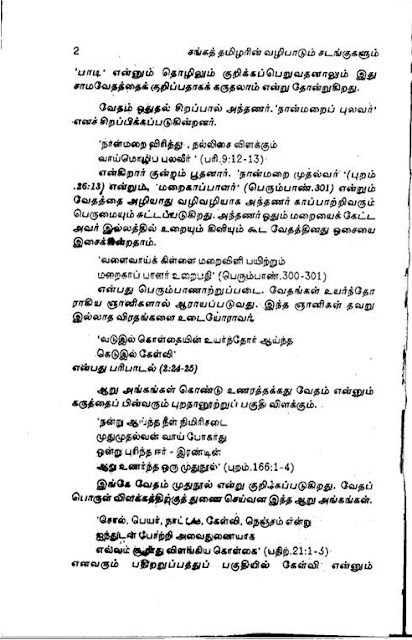 2 சங்கத் தமிழரின் வழிபாடும் சடங்குகளும்
'பாடி' என்னும் தொழிலும் குறிக்கப்பெறுவதனாலும் இது
சாமவேதத்தைக் குறிப்பதாகக் கருதலாம் என்று தோன்றுகிறது.
வேதம் ஓதுதல் சிறப்பால் அந்தணர். 'நான்மறைப் புலவர்'
எனச் சிறப்பிக்கப்படுகின்றனர்.
'நான்மறை விரித்து , நல்லிசை விளக்கும்
வாய்மொழிப் புலவீர் ' (பரி.9:12-13)
என்கிறார் குன்றம் பூதனார். 'நான்மறை முதல்வர்' '(புறம்
.26:13) என்றும், 'மறைகாப்பாளர்' (பெரும்பாண்.301) என்றும்
வேதத்தை அழியாது வழிவழியாக அந்தணர் காப்பாற்றிவரும்
பெருமையும் சுட்டப்படுகிறது. அந்தணர் ஓதும் மறையைக் கேட்ட
அவர் இல்லத்தில் உறையும் கிளியும் கூட வேதத்தினது ஓசையை
இசைக்கின்றதாம்.
'வளைவாய்க் கிள்ளை மறைவிளி பயிற்றும்
மறைகாப் பாளர் உறைபதி' (பெரும்பாண்.300-301)
என்பது பெரும்பாணாற்றுப்படை. வேதங்கள் உயர்ந்தோ
ராகிய ஞானிகளால் ஆராயப்படுவது. இந்த ஞானிகள் தவறு
இல்லாத விரதங்களை உடையோராவர்
'வடுஇல் கொள்கையின் உயர்ந்தோர் ஆய்ந்த
கெடுஇல் கேள்வி'
என்பது பரிபாடல் (2:24-25)
ஆறு அங்கங்கள் கொண்டு உணரத்தக்கது வேதம் என்னும்
கருத்தைப் பின்வரும் புறநானூற்றுப் பகுதி விளக்கும்.
'நன்று ஆய்ந்த நீள் நிமிர்சடை
முதுமுதல்வன் வாய் போகாது
ஒன்று புரிந்த ஈர் - இரண்டின்
ஆறு உணர்ந்த ஒரு முதுநூல்' (புறம்.166:1-4)
இங்கே வேதம் முதுநூல் என்று குறிக்கப்படுகிறது. வேதப்
பொருள் விளக்கத்திற்குத் துணை செய்வன இந்த ஆறு அங்கங்கள்.
'சொல், பெயர், நாட்டம், கேள்வி, நெஞ்சம் என்று
ஐந்துடன் போற்றி அவைதுணையாக
எவ்வம் சூழாது விளங்கிய கொள்கை' (பதிற்.21:1-3)
எனவரும் பதிற்றுப்பத்துப் பகுதியில் கேள்வி என்னும்